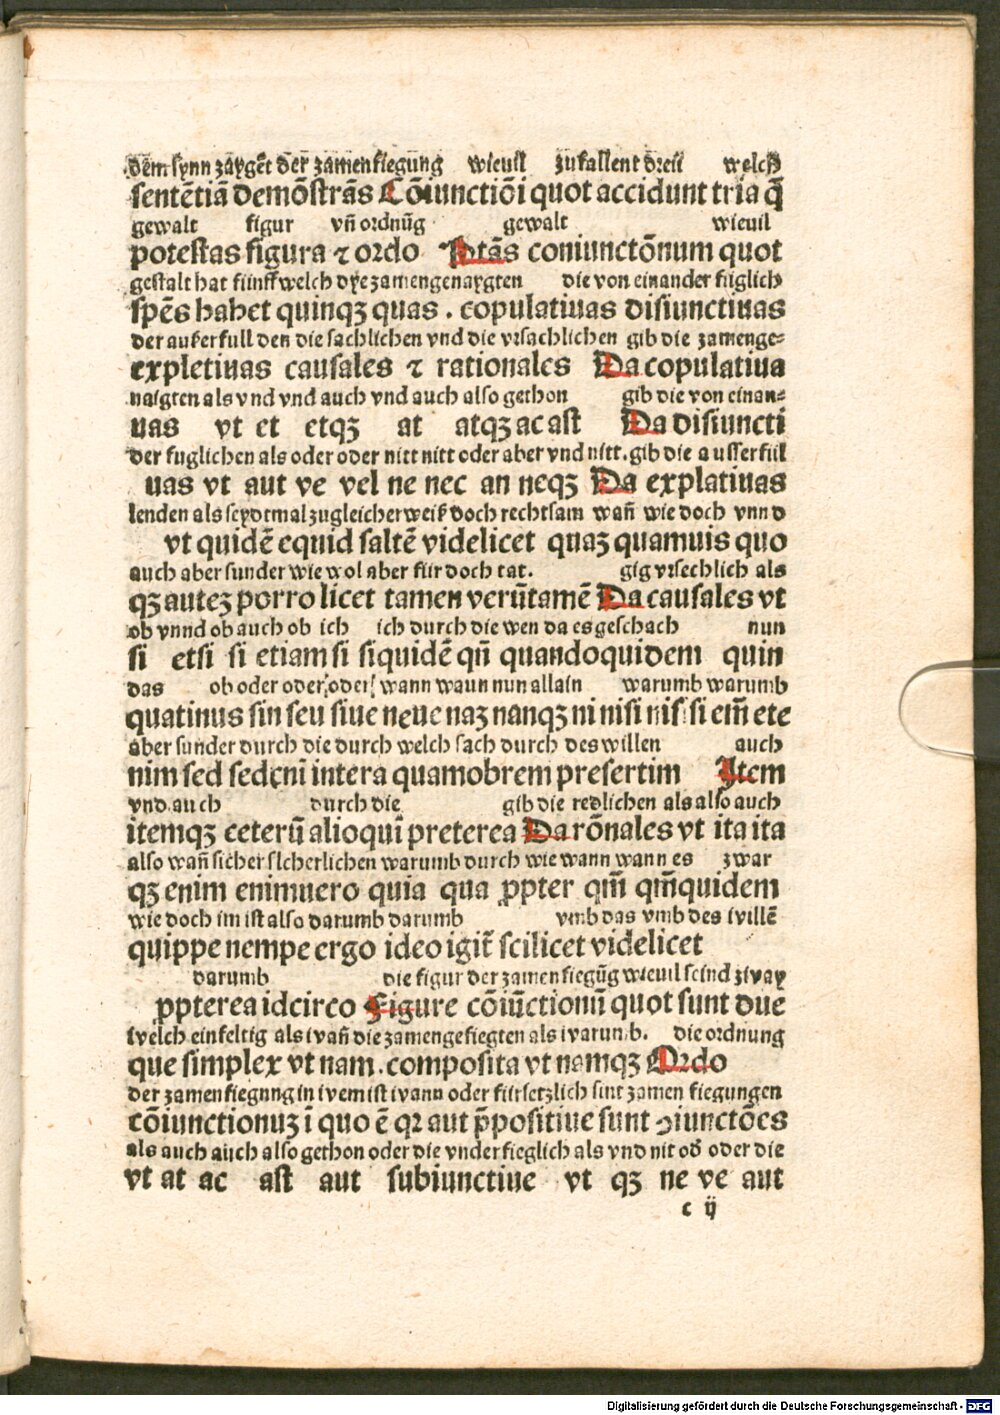 dem synn zayget der zamenfiegung wieuil zufallent dreii welch
sentētiā demōstrās Cōiunctiōi quot accidunt tria q̄
gewalt figur vñ ordnūg gewalt wieuil
potestas figura ⁊ ordo Ptās coniunctōnum quot
gestalt hat fiinff welch dye zamengenaygten die von einander fiiglich
spēs habet quinqꝫ quas . copulatiuas disiunctiuas
der aufɛrfull den die sachlichen vnd die vrsachlichen gib die zamenge⸗
expletiuas causales ⁊ rationales Da copulatiua
naigten als vnd vnd auch vnd auch also gethon gib die von einan⸗
uas vt et etqꝫ at atqꝫ ac ast Da disiuncti
der fuglichen als oder oder nitt nitt oder aber vnd nitt. gib die ausserfiil
uas vt aut ve vel ne nec an neqꝫ Da explatiuas
lenden als seydtmal zugleicherweiß doch rechtsam wañ wie doch vnnd
vt quidē equid saltē videlicet quaꝫ quamuis quo
auch aber sunder wie wol aber fiir doch tat. gig vrsechlich als
qꝫ auteꝫ porro licet tamen verūtamē Da causales vt
ob vnnd ob auch ob ich ich durch die wen da es geschach nun
si etsi si etiam si siquidē qñ quandoquidem quin
das ob oder oder oder wann waun nun allain warumb warumb
quatinus sin seu siue neue naꝫ nanqꝫ ni nisi nisi si em̄ ete
aber sunder durch die durch welch sach durch des willen auch
nim sed sed eni intera quamobrem presertim Item
vnd auch durch die gib die redlichen als also auch
itemqꝫ ceterū alioqui preterea Da rōnales vt ita ita
also wañ sicher sicherlichen warumb durch wie wann wann es zwar
qꝫ enim enimuero quia qua ꝓpter qm̄ qm̄quidem
wie doch im ist also darumb darumb vmb das vmb des willē
quippe nempe ergo ideo igit̄ scilicet videlicet
darumb die figur der zamenfiegūg wieuil seind zway
ꝓpterea idcirco Figure cōiūctionū quot sunt due
welch einfeltig als wañ die zamengefiegten als warumb. die ordnung
que simplex vt nam . composita vt namqꝫ Ordo
der zamenfiegnng in wem ist wann oder fiirsetzlich sint zamen fiegungen
cōiunctionuꝫ ī quo ē qꝛ aut p̄positiue sunt ꝯiunctōes
als auch auch also gethon oder die vnderfieglich als vnd nit od̄ oder die
vt at ac ast aut subiunctiue vt qꝫ ne ve aut
c ij
Digitalisierung gefördert durch die Deutsche Forschungsgemeinschaft - DFG